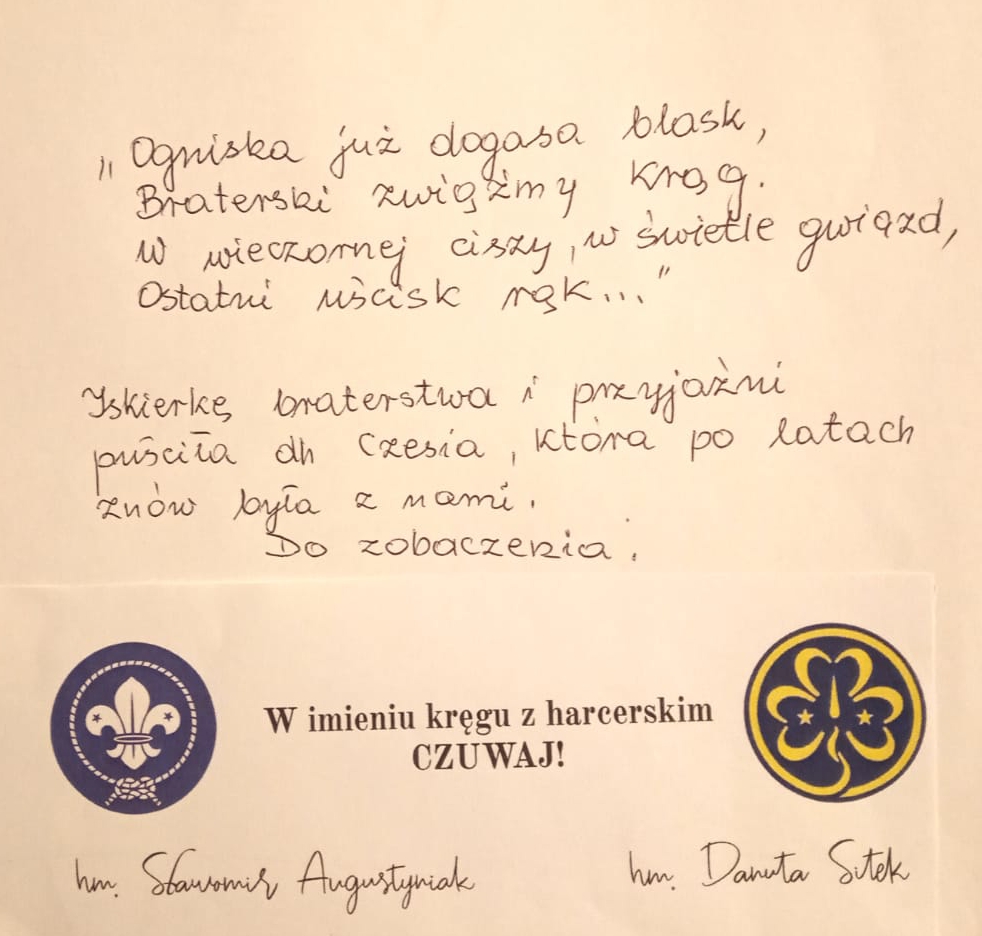 „Ogniska już dogasa blask,
Braterski zwiążmy krąg.
W wieczornej ciszy, w świetle gwiazd,
Ostatni uścisk rąk..."
Iskierkę braterstwa i przyjaźni
puściła dh Czesia, która po latach
znów była z nami.
Do zobaczenia.
W imieniu kręgu z harcerskim
CZUWAJ!
hm. Sławomir Augustyniak
hm. Danuta Sitek